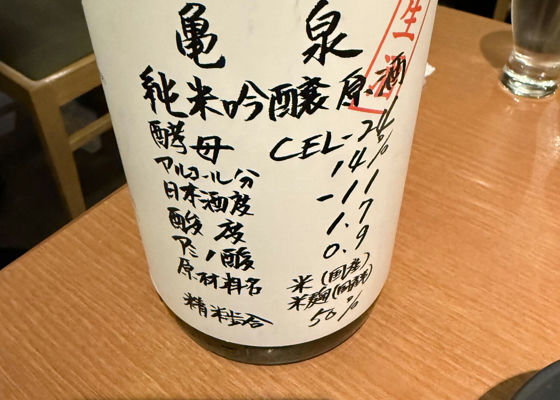 亀泉
生酒
純米吟醸原酒
酵母 CEL-24
アルコール分 14%
日本酒度 -11
酸度 1.7
アミノ酸 0.9
原材料名 米(国産)
米麹(国産米)
精米歩合 50%